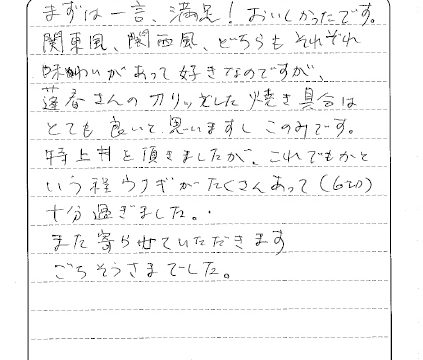 まずは一言、満足！おいしかったです。
関東風、関西風、どちらもそれぞれ
味わいがあって好きなのですが、
蓮春さんのカリッとした焼き具合は
とても良いと思いますしこのみです。
特上丼を頂きましたが、これでもかと
いう程ウナギがたくさんあって
十分過ぎました。
また寄らせていただきます
ごちそうさまでした。